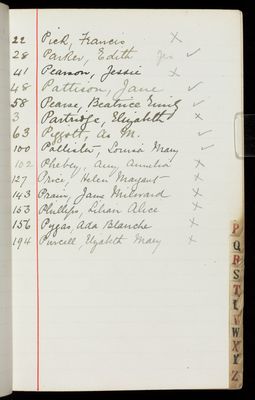 22 Pick, Francis X
28 Parker, Edith Yes ✓
41 Pearson, Jessie X
48 Pattison, Jane ✓
58 Pearse, Beatrice Emily ✓
3 Partridge, Elizabeth X
63 Pigott, M. ✓
100 Pallister, Louisa Mary ✓
102 Phebey, Amy Amelia X
127 Price, Helen Margaret X
143 Prain, Jane Milward X
153 Phillips, Lilian Alice X
156 Pygas, Ada Blanche X
194 Purcell, Elizabeth Mary X
P
Q
R
S
T
V
W
X
Y
Z